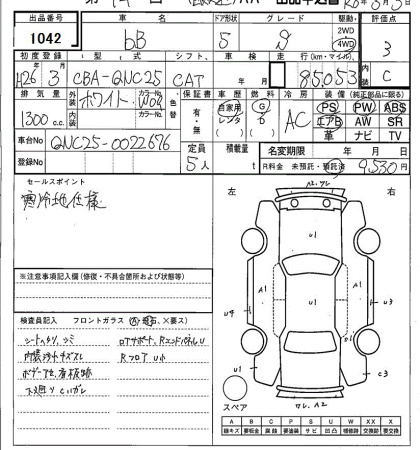 出品番号 車名 ドア形状 グレード 駆動 評価点
1042 bB 5 9 2WD 4WD 3
初度登録 型式 シフト 車検 走行(km・マイル) 内装
H26 3 CBA-QNC25 CAT 年 月 85053 C
排気量 外装色 カラーNo. 内装色 カラーNo. 色替 保証書 車歴 燃料 冷房 装備(純正部品に限る)
1300 c.c. ホワイト W09 有・無 自家用 レンタ G D AC PS PW ABS
エアB AW SR
革 ナビ TV
車台No QNC25-0022676
登録No
定員 5人 積載量 t
名変期限 年 月 日
R料金 未預託・預託済 9,530 円
セールスポイント
寒冷地仕様
左 右
※注意事項記入欄(修復・不具合箇所および状態等)
検査員記入 フロントガラス(A・飛石、×要ス)
シートヘタリ、シミ ロアサポート、RエンドパネルU
内張キズスレ RフロアU小
ボデーアセ、看板跡
下廻りCハガレ
U1
A1
U4
U1
A1
U3
U1
C3
ワレ、A2
スペア
A B C P S U W XX X
線キズ 要板金 腐 要塗装 サビ 凹 補修跡 交換跡 要交換